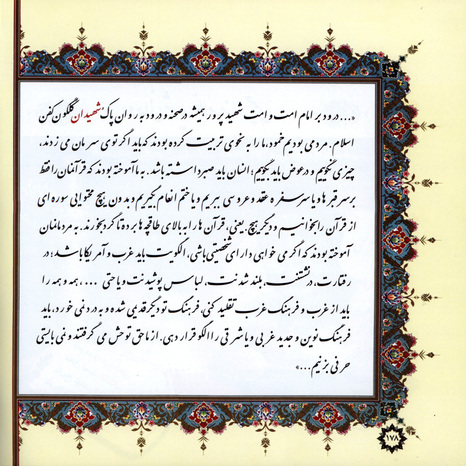 «...درود بر امام امت و امت شهید پرور همیشه در صحنه و درود به روان پاک شهیدان گلگون کفن
اسلام. مردمی بودیم خمود، ما را به نحوی تربیت کرده بودند که باید اگر توی سرمان می زدند،
چیزی نگوییم و در عوض باید بگوییم: انسان باید صبر داشته باشد. به ما آموخته بودند که قرآنمان را فقط
بر سر قبرها و یا سر سفره عقد و عروسی ببریم و یا ختم انعام بگیریم و بدون هیچ محتوایی سوره ای
از قرآن را بخوانیم و دیگر هیچ. یعنی، قرآن ها را به بالای طاقچه ها برده تا گرد بخورند. به مردمانمان
آموخته بودند که اگر می خواهی دارای شخصیتی باشی، الگویت باید غرب و آمریکا باشد؛ در
رفتارت، در نشستنت، بلند شدنت، لباس پوشیدنت و یا حتی ...، همه و همه را
باید از غرب و فرهنگ غرب تقلید کنی، فرهنگ تو دیگر قدیمی شده و به درد نمی خورد، باید
فرهنگ نوین و جدید غربی و یا شرقی را الگو قرار دهی. از ما حق توحش می گرفتند و نمی بایستی
حرفی بزنیم...»
۱۷۸